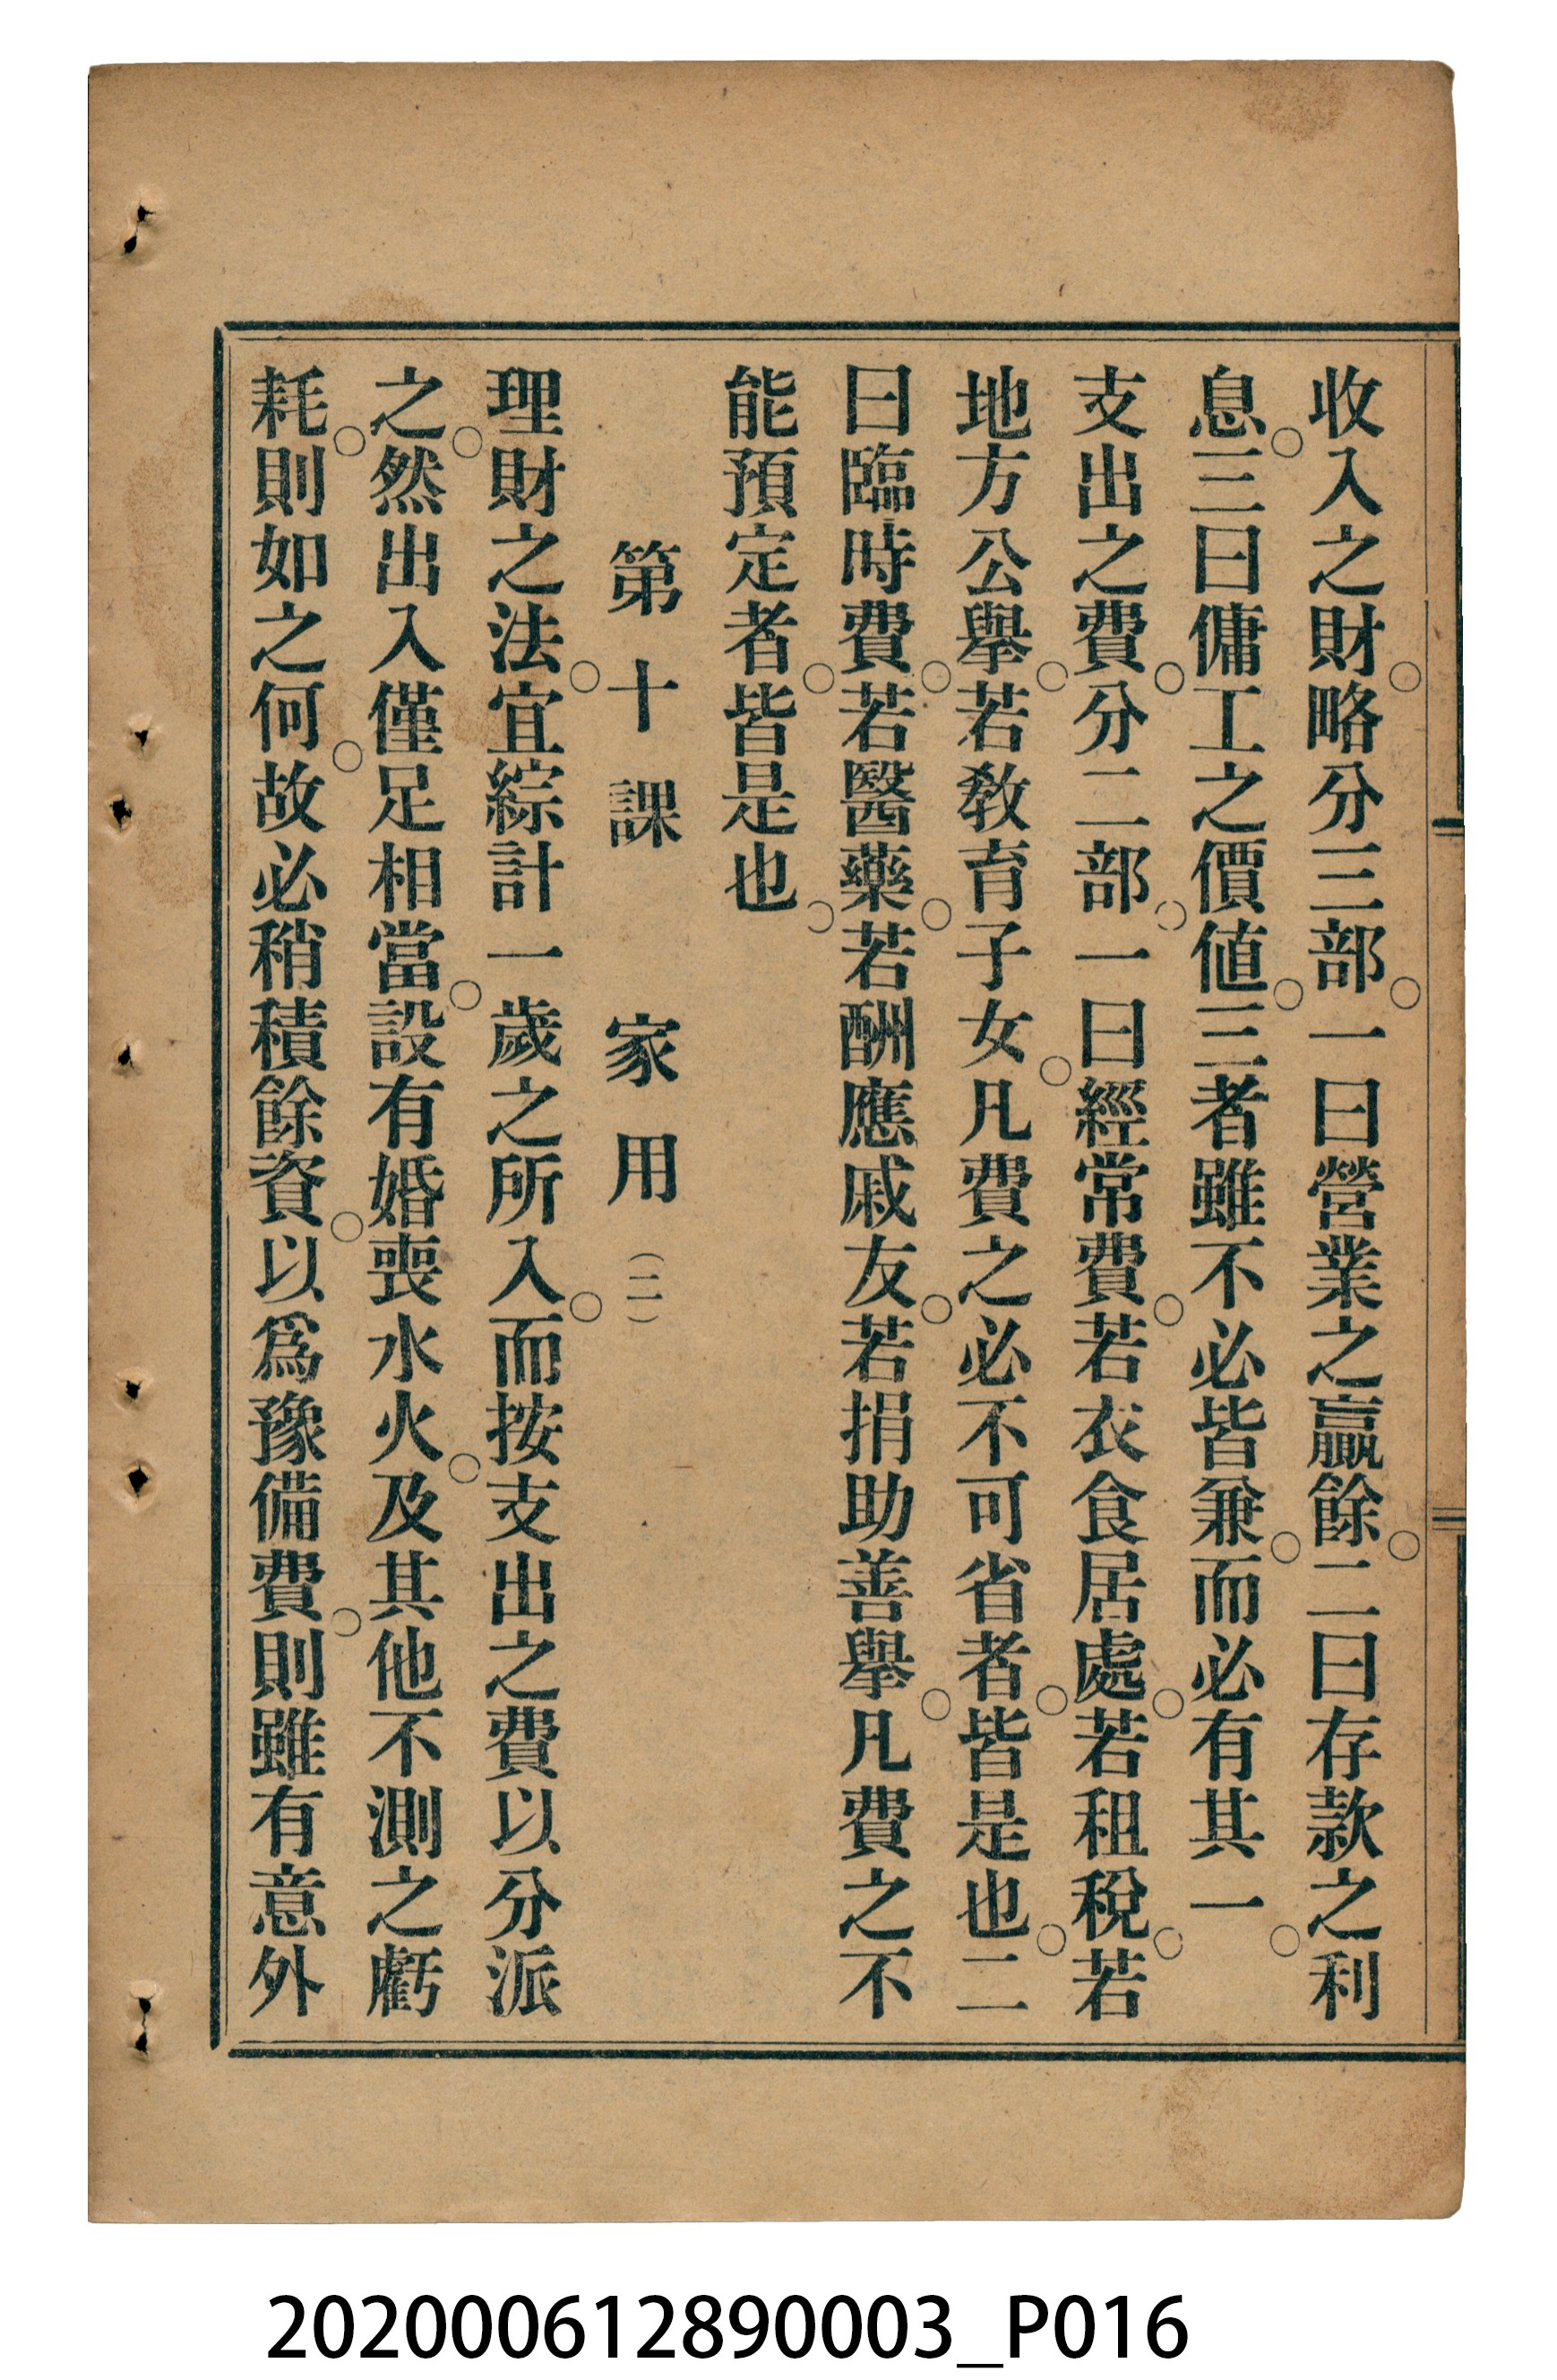 收入之財。略分三部。一曰營業之贏餘。二曰存款之利
息。三曰傭工之價値。三者雖不必皆兼。而必有其一。
支出之費。分二部。一曰經常費。若衣食居處。若租稅。若
地方公舉。若敎育子女。凡費之必不可省者。皆是也。二
曰臨時費。若醫藥。若酬應戚友。若捐助善舉。凡費之不
能預定者。皆是也。
第十課 家用（二）
理財之法。宜綜計一歲之所入。而按支出之費以分派
之。然出入僅足相當。設有婚喪水火。及其他不測之虧
耗。則如之何。故必稍積餘資。以爲豫備費。則雖有意外
202000612890003_P016